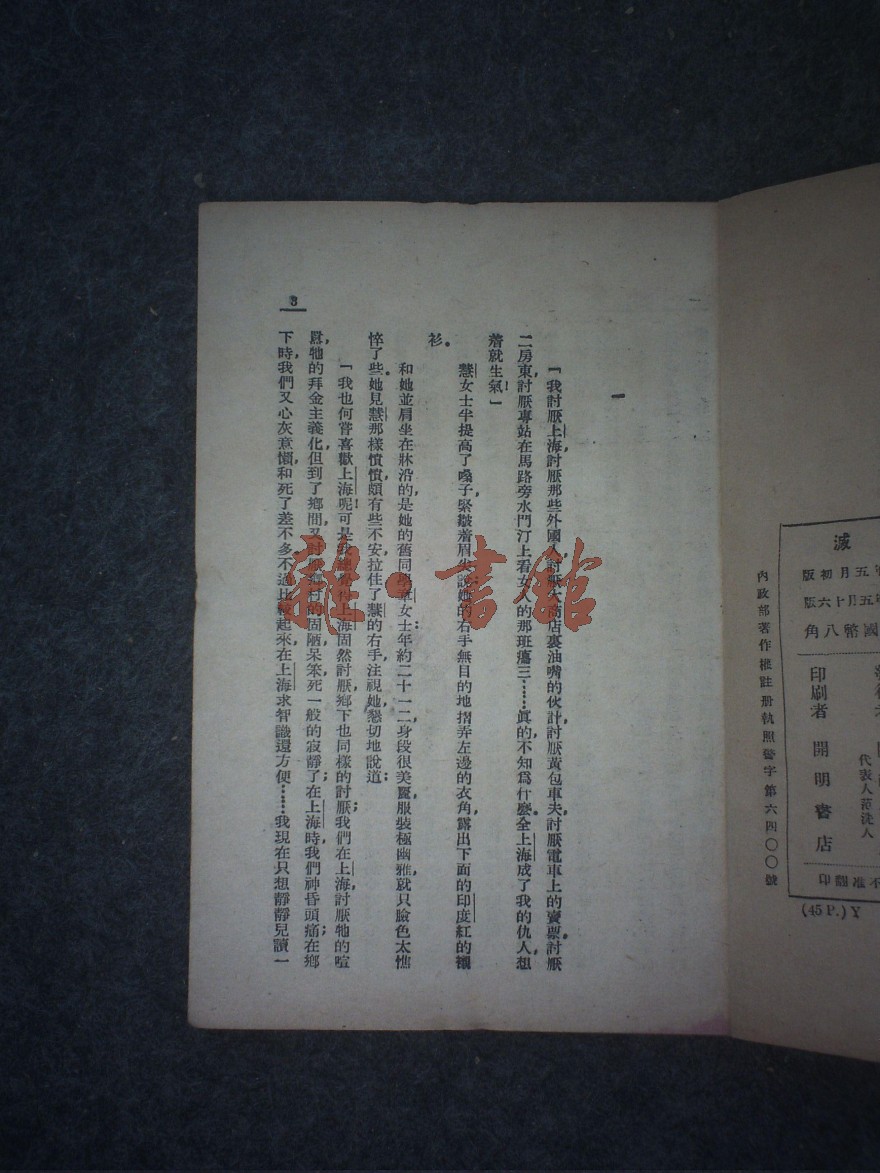 滅
五月初版
五月十六版
國幣八角
代表人范洗人
印刷者 開明書店
不准翻印
內政部著作權註册執照警字第六四〇〇號
(45 P.) Y
一
「我討厭上海，討厭那些外國人，討厭大商店裏油嘴的伙計，討厭黃包車夫，討厭電車上的賣票，討厭
二房東，討厭專站在馬路旁水門汀上看女人的那班癟三……眞的，不知爲什麼，全上海成了我的仇人，想
着就生氣！」
慧女士半提高了嗓子，緊皺着眉尖說；她的右手無目的地捎弄左邊的衣角，露出下面的印度紅的襯
衫。
和她並肩坐在牀沿的，是她的舊同學章女士：年約二十一二，身段很美麗，服裝極幽雅，就只臉色太憔
悴了些。她見慧那樣憤憤，頗有些不安，拉住了慧的右手，注視她，懇切地說道：
「我也何嘗喜歡上海呢！可是我總覺得上海固然討厭，鄉下也同樣的討厭；我們在上海，討厭牠的喧
囂，牠的拜金主義化，但到了鄉間，又討厭鄉村的固陋，呆笨，死一般的寂靜了；在上海時我們神昏頭痛；在鄉
下時，我們又心灰意懶，和死了差不多。不過比較起來，在上海求智識還方便……我現在只想靜靜兒讀一
3
雜·書館